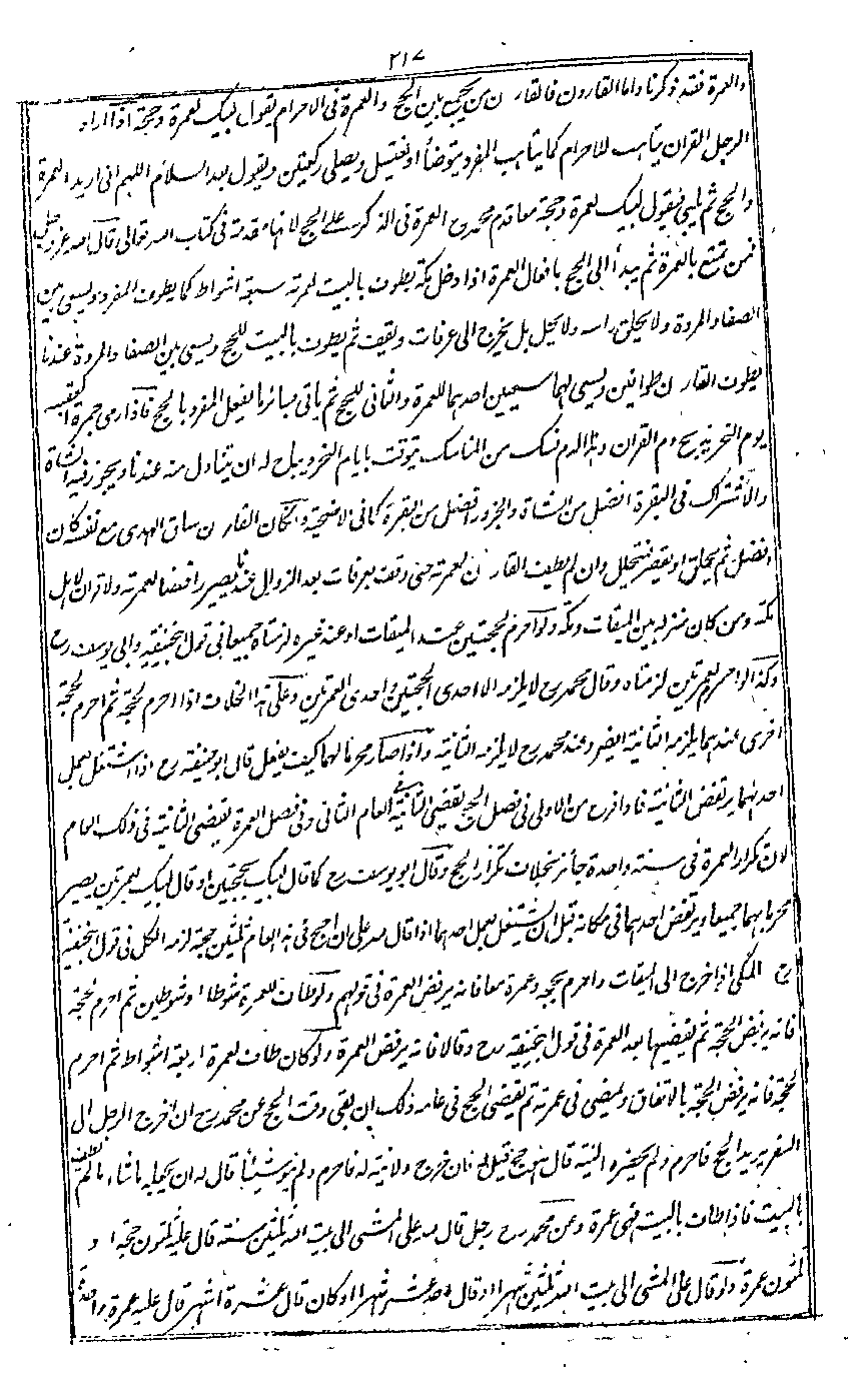 ٢١٧
والعمرة فقد ذكرنا واما القارن فالقارن من يجمع بين الحج والعمرة فى الاحرام يقول لبيك بعمرة وحجة اذا اراد
الرجل القران يتأهب للاحرام كما يتأهب المفرد يتوضأ او يغتسل ويصلى ركعتين ويقول بعد السلام اللهم انى اريد العمرة
والحج ثم يلبى فيقول لبيك بعمرة وحجة معا قدم محمد رح العمرة فى الذكر على الحج لانها مقدمة فى كتاب الله تعالى قال الله عز وجل
فمن تمتع بالعمرة الى الحج ثم يبدأ بافعال العمرة اذا دخل مكة يطوف بالبيت لعمرته سبعة اشواط كما يطوف المفرد ويسعى بين
الصفا والمروة ولا يحلق رأسه ولا يحل بل يخرج الى عرفات ويقف ثم يطوف بالبيت للحج ويسعى بين الصفا والمروة عندنا
يطوف القارن طوافين ويسعى لهما سعيين احدهما للعمرة والثانى للحج ثم يأتى سائر ما يفعل المفرد بالحج فاذا رمى جمرة العقبة
يوم النحر يذبح دم القران وهذا الدم نسك من المناسك يتوقت بايام النحر ويباح له ان يتناول منه عندنا ويجوز فيه الشاة
والاشتراك فى البقرة افضل من الشاة والجزور افضل من البقرة كما فى الاضحية وان كان القارن ساق الهدى مع نفسه كان
افضل ثم يحلق او يقصر فيتحلل وان لم يطف القارن لعمرته حتى وقف بعرفات بعد الزوال عندنا يصير رافضا لعمرته ولا قران لاهل
مكة ومن كان منزله بين الميقات ومكة ولو احرم بحجتين عند الميقات او عند غيره لزمتاه جميعا فى قول ابى حنيفة وابى يوسف رح
وكذا لو احرم بعمرتين لزمتاه وقال محمد رح لا يلزمه الا احدى الحجتين واحدى العمرتين وعلى هذا الخلاف اذا احرم بحجة ثم احرم بحجة
اخرى عندهما يلزمه الثانية ايضا وعند محمد رح لا يلزمه الثانية واذا صار محرما بهما كيف يفعل قال ابو حنيفة رح اذا اشتغل بعمل
احدهما يرتفض الثانية فاذا فرغ من الاولى فى فصل الحج يقضى الثانية فى العام الثانى وفى فصل العمرة يقضى الثانية فى ذلك العام
لان تكرار العمرة فى سنة واحدة جائز بخلاف تكرار الحج وقال ابو يوسف رح كما قال لبيك بحجتين او قال لبيك بعمرتين يصير
محرما بهما جميعا ويرتفض احدهما فى مكانه قبل ان يشتغل بعمل احدهما اذا قال لله على ان احج فى هذا العام ثلثين حجة لزمه الكل فى قول ابى حنيفة
رح المكى اذا خرج الى الميقات واحرم بحجة وعمرة معا فانه يرفض العمرة فى قولهم ولو طاف للعمرة شوطا او شوطين ثم احرم بحجة
فانه يرفض الحجة ثم يقضيها بعد العمرة فى قول ابى حنيفة رح وقالا فانه يرفض العمرة ولو كان طاف لعمرة اربعة اشواط ثم احرم
بحجة فانه يرفض الحجة بالاتفاق ويمضى فى عمرته ثم يقضى الحج فى عامه ذلك ان بقى وقت الحج عن محمد رح ان خرج الرجل الى
السفر يريد الحج فاحرم ولم يحضره النية قال هو حج قيل له فان خرج ولا نية له فاحرم ولم ينو شيئا قال له ان يجعله ما شاء ما لم يطف
بالبيت فاذا طاف بالبيت فهى عمرة وعن محمد رح رجل قال لله على المشى الى بيت الله ثلثين سنة قال عليه ثلثون حجة او
ثلثون عمرة ولو قال على المشى الى بيت الله ثلثين شهرا او قال احد عشر شهرا او كان قال عشرة اشهر قال عليه عمرة واحدة